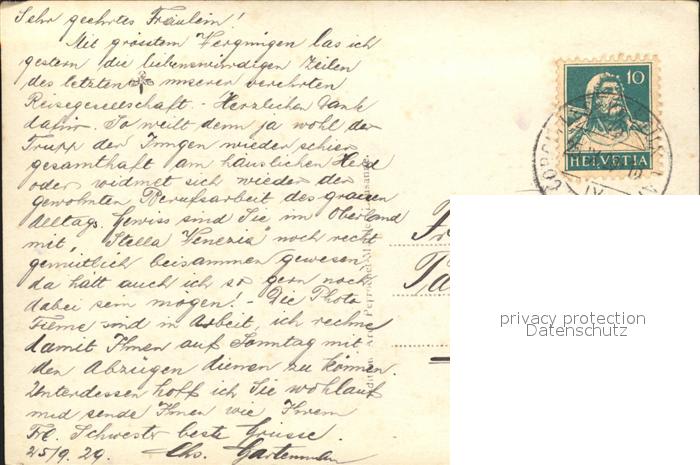 Sehr geehrtes Fräulein!
Mit grösstem Vergnügen las ich
gestern die liebenswürdigen Zeilen
des letzten unserer verehrten
Reisegesellschaft. - Herzlichen Dank
dafür. So weilt denn ja wohl der
Trupp der Inngen wieder schier
gesamthaft am häuslichen Herd
oder widmet sich wieder der
gewohnten Berufsarbeit des grauen
Alltags. Gewiss sind Sie im Oberland
mit „Stella Venezia" noch recht
gemütlich beisammen gewesen
da hätt auch ich so gern noch
dabei sein mögen! - Die Photo
Filme sind in Arbeit, ich rechne
damit Ihnen auf Sonntag mit
den Abzügen dienen zu können.
Unterdessen hoff ich Sie wohlauf
und sende Ihnen wie Ihrem
Frl. Schwester beste Grüsse.
25/9.29. Chs. Gartenmann
10
HELVETIA
Fr
privacy protection
Datenschutz